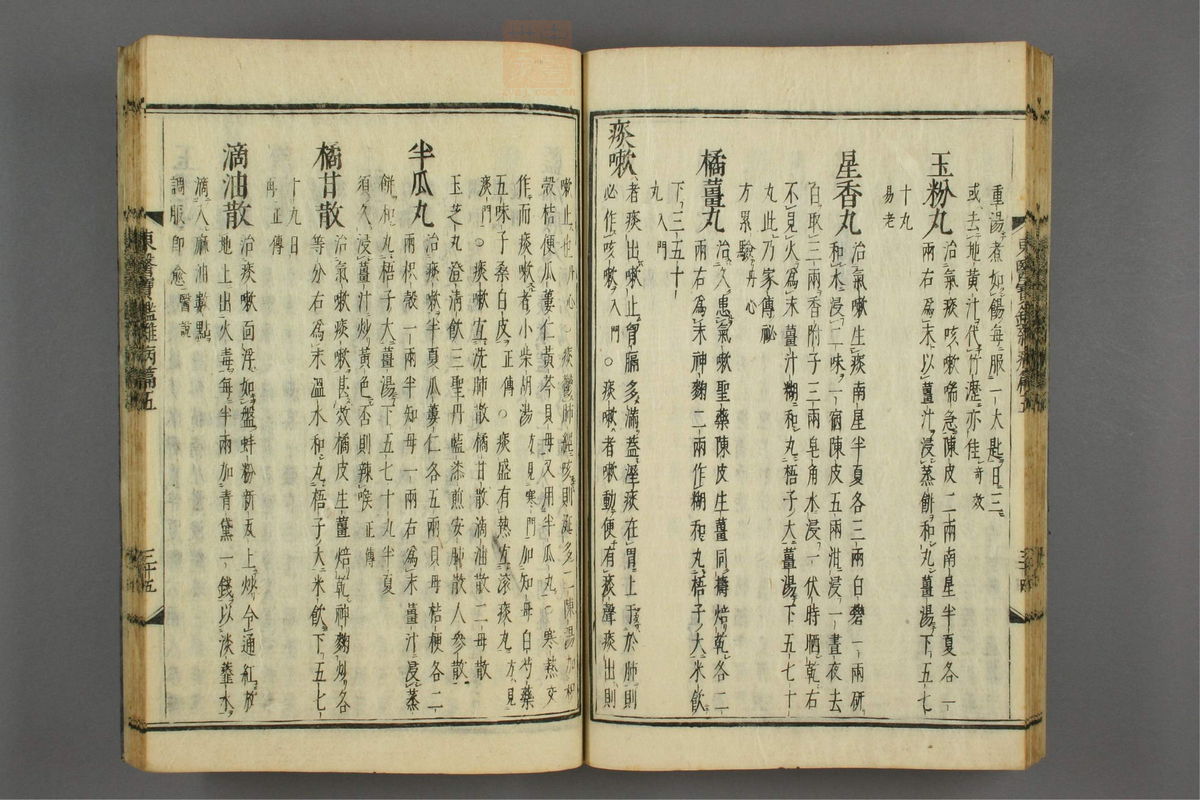 重湯煮如餳每服一大匙日三
或去地黃汁代竹瀝亦佳奇效
玉粉丸治氣痰咳嗽喘急陳皮二兩南星半夏各一
兩右爲末以薑汁浸蒸餅和丸薑湯下五七
十丸
易老
星香丸治氣嗽生痰南星半夏各三兩白礬一兩硏
和水浸二味一宿陳皮五兩泔浸一晝夜去
白取三兩香附子三兩皂角水浸一伏時晒乾右
不見火爲末薑汁糊和丸梧子大薑湯下五七十
丸此乃家傳祕
方累驗丹心
橘薑丸治久患氣嗽聖藥陳皮生薑同擣焙乾各二
兩右爲末神麴二兩作糊和丸梧子大米飮
下三五十
丸入門
痰嗽者痰出嗽止胸膈多滿蓋溼痰在胃上于於肺則
必作咳嗽入門○痰嗽者嗽動便有痰聲痰出則
嗽止也丹心○痰鬱肺經咳則涎多
殼桔便瓜蔞仁黃芩貝母又用半瓜丸○寒熱交
作而痰嗽者小柴胡湯方見寒門加知母白芍藥
五味子桑白皮正傳○痰盛有熱宜滾痰丸方見
痰門○痰嗽宜洗肺散橘甘散滴油散二母散
玉芝丸澄淸飮三聖丹藍漆煎安肺散人參散
半瓜丸治痰嗽半夏瓜蔞仁各五兩貝母桔梗各二
兩枳殼一兩半知母一兩右爲末薑汁浸蒸
餠和丸梧子大薑湯下五七十丸半夏
須久浸薑汁炒黃色否則辣喉正傳
橘甘散治氣嗽痰嗽甚效橘皮生薑焙乾神麴炒各
等分右爲末溫水和丸梧子大米飮下五七
十丸日
再正傳
滴油散治痰嗽面浮如盤蚌粉新瓦上炒令通紅放
地上出火毒每半兩加靑黛一錢以淡虀水
滴入麻油數點
調服卽愈醫說
東醫寶鑑雜病篇五
三十五